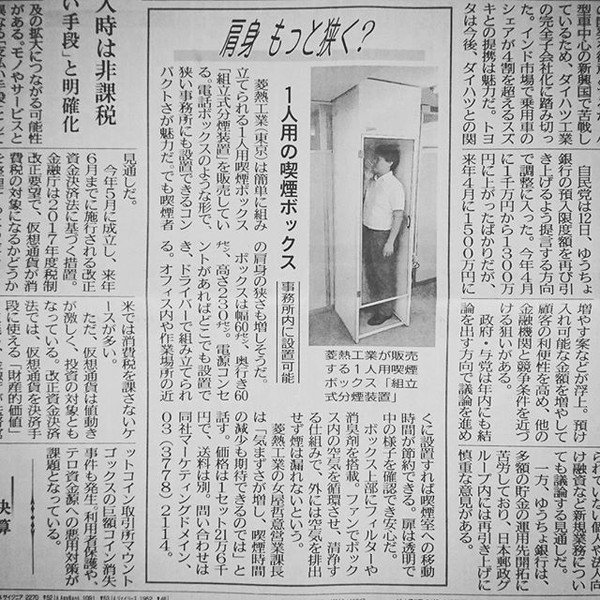 肩身 もっと狭く?
1人用の喫煙ボックス
事務所内に設置可能
菱熱工業(東京)は簡単に組み
立てられる1人用喫煙ボックス
「組立式分煙装置」を販売してい
る。電話ボックスのような形で、
狭い事務所にも設置できるコン
パクトさが魅力だ。でも喫煙者
の肩身の狭さも増しそうだ。
ボックスは幅60㌢、奥行き60
㌢、高さ230㌢。電源コンセ
ントがあればどこでも設置で
き、ドライバーで組み立てられ
る。オフィス内や作業場所の近
くに設置すれば喫煙室への移動
時間が節約できる。扉は透明で
中の様子を確認でき安心だ。
ボックス上部にフィルターや
消臭剤を搭載。ファンでボック
ス内の空気を循環させ、清浄す
る仕組みで、外には空気を排出
せず煙は漏れないという。
菱熱工業の女屋哲意営業課長
は「気まずさが増し、喫煙時間
の減少も期待できるのでは」と
話す。価格は1セット21万6千
円で、送料は別。問い合わせは
同社マーケティングドメイン、
03(3778)2114。
菱熱工業が販売
する1人用喫煙
ボックス「組立
式分煙装置」
型車中心の新興国で苦戦し
ているため、ダイハツ工業
の完全子会社化に踏み切っ
た。インド市場で乗用車の
シェアが4割を超えるスズ
キとの提携は魅力だ。トヨ
タは今後、ダイハツとの関
自民党は12日、ゆうちょ
銀行の預入限度額を再び引
き上げるよう提言する方向
で調整に入った。今年4月
に1千万円から1300万
円に上がったばかりだが、
来年4月に1500万円に
増やす案などが浮上。預け
入れ可能な金額を増やして
顧客の利便性を高め、他の
金融機関と競争条件を近づ
ける狙いがある。
政府・与党は年内にも結
論を出す方向で議論を進め
られていない個人や法人向
け融資など新規業務につい
ても議論する見通しだ。
一方、ゆうちょ銀行は、
多額の貯金の運用先開拓に
苦労しており、日本郵政グ
ループ内には再引き上げに
慎重な意見がある。
入時は非課税
い手段」と明確化
及の拡大につながる可能性
がある。モノやサービスと
見通しだ。
今年5月に成立し、来年
6月までに施行される改正
資金決済法に基づく措置。
金融庁は2017年度税制
改正要望で、仮想通貨が消
費税の対象になるかどうか
米では消費税を課さないケ
ースが多い。
ただ、仮想通貨は値動き
が激しく、投資の対象とも
なっている。改正資金決済
法では、仮想通貨を決済手
段に使える「財産的価値」
ットコイン取引所マウント
ゴックスの巨額コイン消失
事件も発生。利用者保護や、
テロ資金源への悪用対策が
課題となっている。
決算